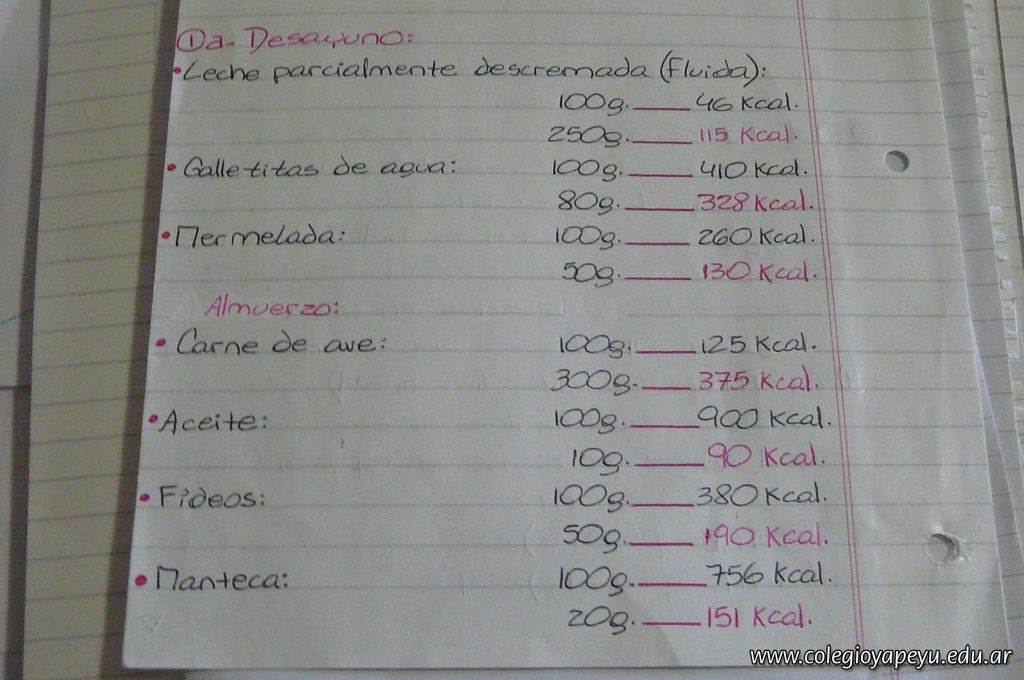 ①a- Desayuno:
• Leche parcialmente descremada (fluida):
100g. ___ 46 Kcal.
250g. ___ 115 Kcal.
• Galletitas de agua: 100g. ___ 410 Kcal.
80g. ___ 328 Kcal.
• Mermelada: 100g. ___ 260 Kcal.
50g. ___ 130 Kcal.
Almuerzo:
• Carne de ave: 100g. ___ 125 Kcal.
300g. ___ 375 Kcal.
• Aceite: 100g. ___ 900 Kcal.
10g. ___ 90 Kcal.
• Fideos: 100g. ___ 380 Kcal.
50g. ___ 190 Kcal.
• Manteca: 100g. ___ 756 Kcal.
20g. ___ 151 Kcal.
www.colegioyapeyu.edu.ar